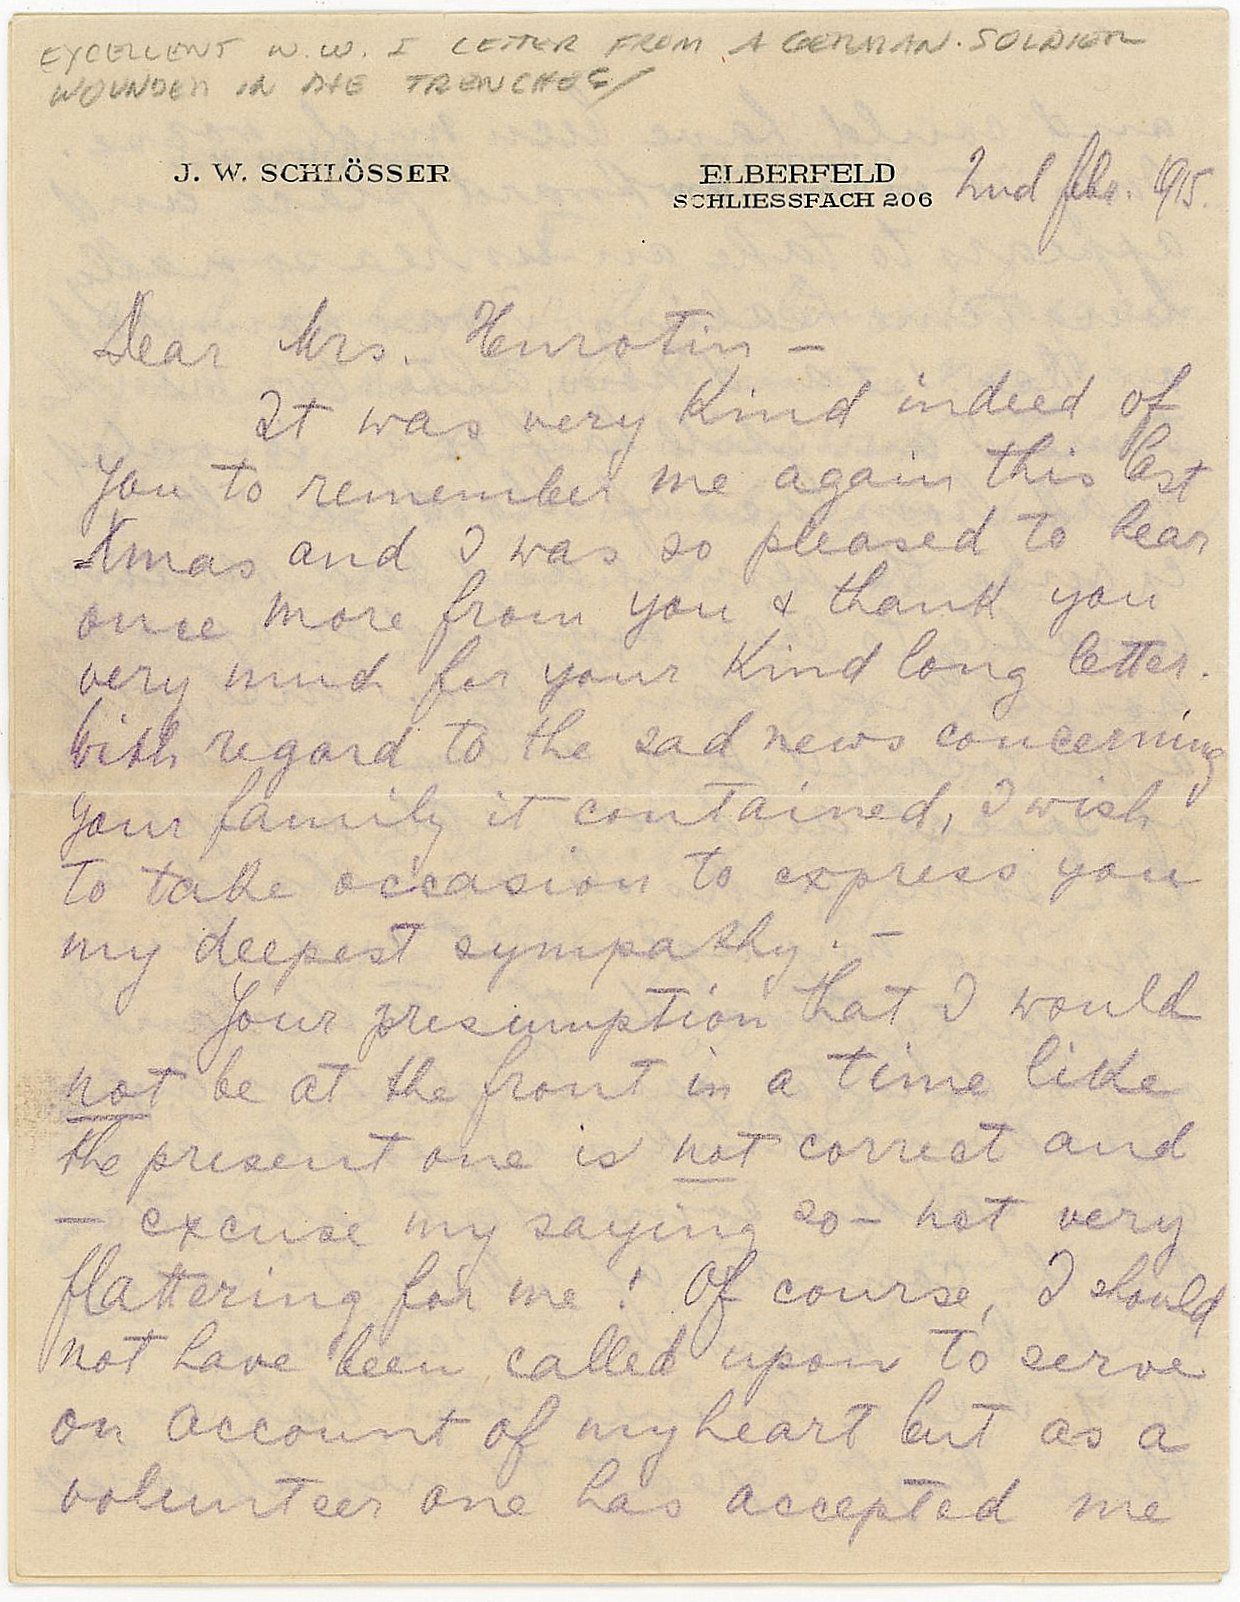 EXCELLENT W.W. I LETTER FROM A GERMAN SOLDIER
WOUNDED IN THE TRENCHES
J. W. SCHLÖSSER
ELBERFELD
SCHLIESSFACH 206
2nd febr. 1915.
Dear Mrs. Henrotin –
It was very kind indeed of
you to remember me again this last
Xmas and I was so pleased to hear
once more from you & thank you
very much for your kind long letter.
With regard to the sad news concerning
your family it contained, I wish
to take occasion to express you
my deepest sympathy. –
Your presumption that I would
not be at the front in a time like
the present one is not correct and
– excuse my saying so – not very
flattering for me! Of course, I should
not have been called upon to serve
on account of my heart but as a
volunteer one has accepted me